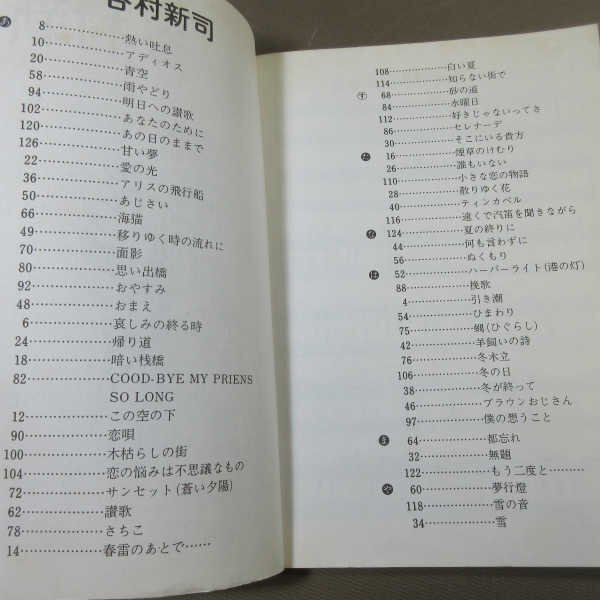 谷村新司
あ 8………………熱い吐息
10………………アディオス
20………………青空
58………………雨やどり
94………………明日への讃歌
102………………あなたのために
120………………あの日のままで
126………………甘い夢
22………………愛の光
36………………アリスの飛行船
50………………あじさい
66………………海猫
49………………移りゆく時の流れに
70………………面影
80………………思い出橋
92………………おやすみ
48………………おまえ
6………………哀しみの終る時
24………………帰り道
18………………暗い桟橋
82………………COOD-BYE MY PRIENS
SO LONG
12………………この空の下
90………………恋唄
100………………木枯らしの街
104………………恋の悩みは不思議なもの
72………………サンセット(蒼い夕陽)
62………………讃歌
78………………さちこ
14………………春雷のあとで……
108………………白い夏
114………………知らない街で
す 68………………砂の道
84………………水曜日
112………………好きじゃないってさ
86………………セレナーデ
30………………そこにいる貴方
た 16………………煙草のけむり
26………………誰もいない
110………………小さな恋の物語
28………………散りゆく花
40………………ティンカベル
116………………遠くで汽笛を聞きながら
な 124………………夏の終りに
44………………何も言わずに
56………………ぬくもり
は 52………………ハーバーライト(港の灯)
88………………挽歌
4………………引き潮
54………………ひまわり
75………………蜩(ひぐらし)
42………………羊飼いの詩
76………………冬木立
106………………冬の日
38………………冬が終って
46………………ブラウンおじさん
97………………僕の想うこと
ま 64………………都忘れ
32………………無題
122………………もう二度と………
や 60………………夢行燈
118………………雪の音
34………………雪